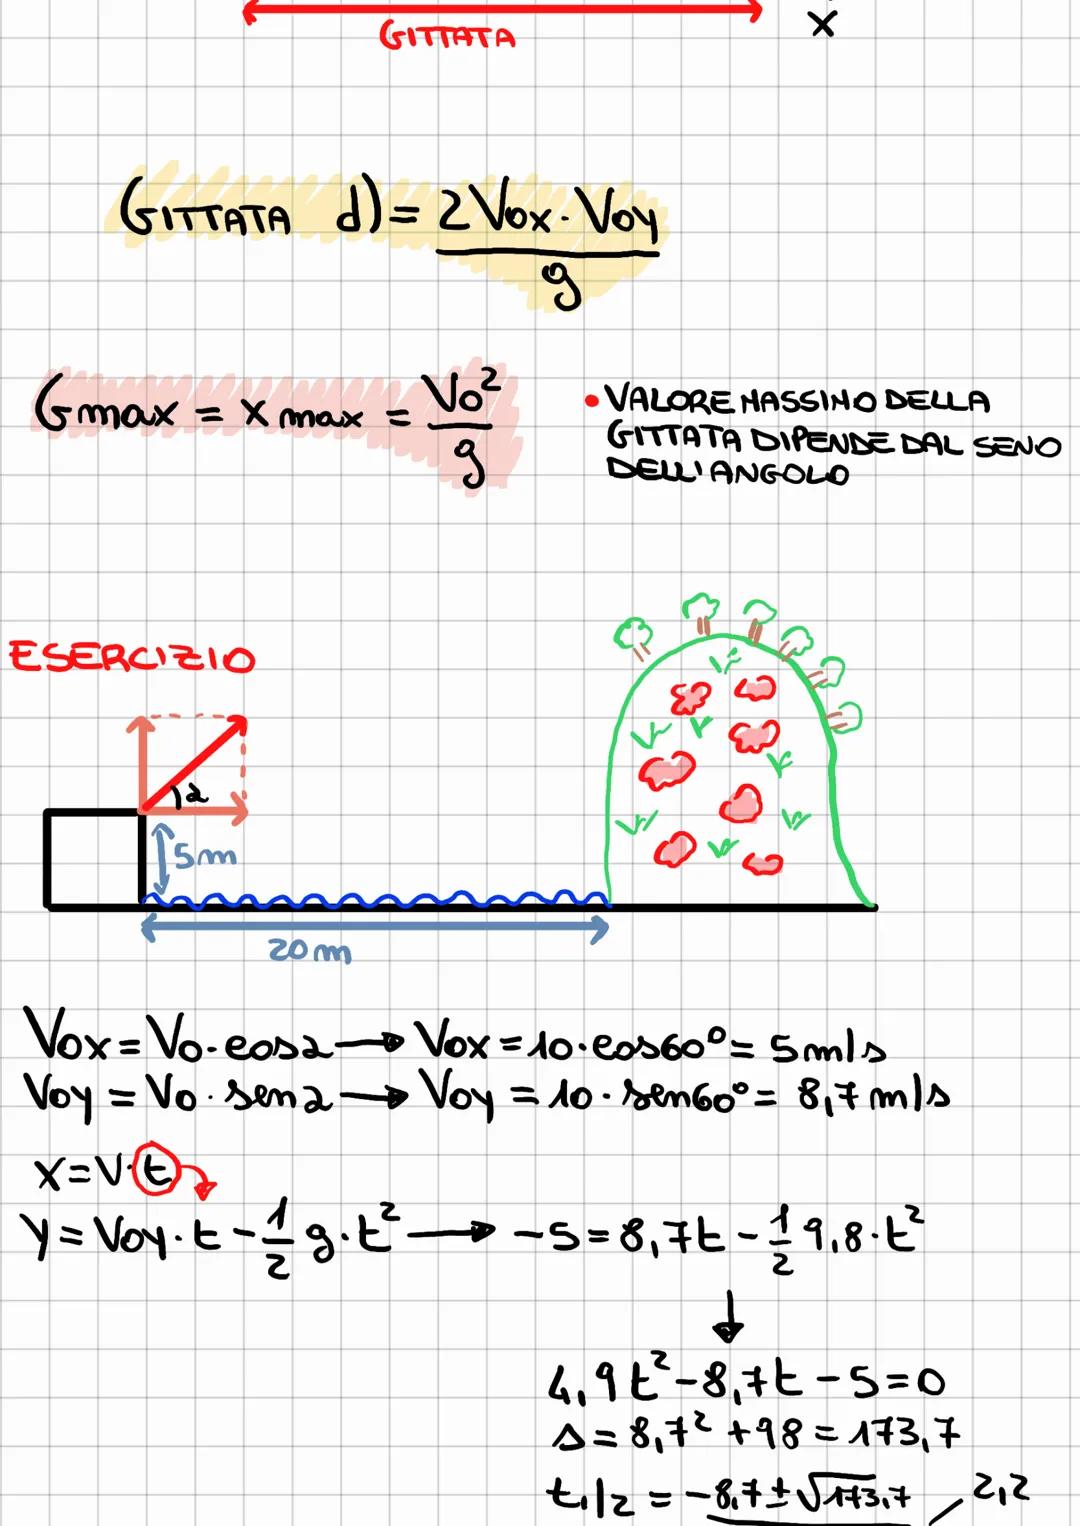 GITTATA
X
(GITTATA d) = 2Vox · Voy / g
Gmax = x max = Vo² / g
• VALORE MASSIMO DELLA
GITTATA DIPENDE DAL SENO
DELL'ANGOLO
ESERCIZIO
α
5m
20m
Vox = Vo · cosα → Vox = 10 · cos60° = 5m/s
Voy = Vo · senα → Voy = 10 · sen60° = 8,7 m/s
x = v · t
y = Voy · t - 1/2 g · t² → -5 = 8,7t - 1/2 9,8 · t²
↓
4,9t² - 8,7t - 5 = 0
Δ = 8,7² + 98 = 173,7
t1/2 = -8,7 ± √173,7 / 2,2